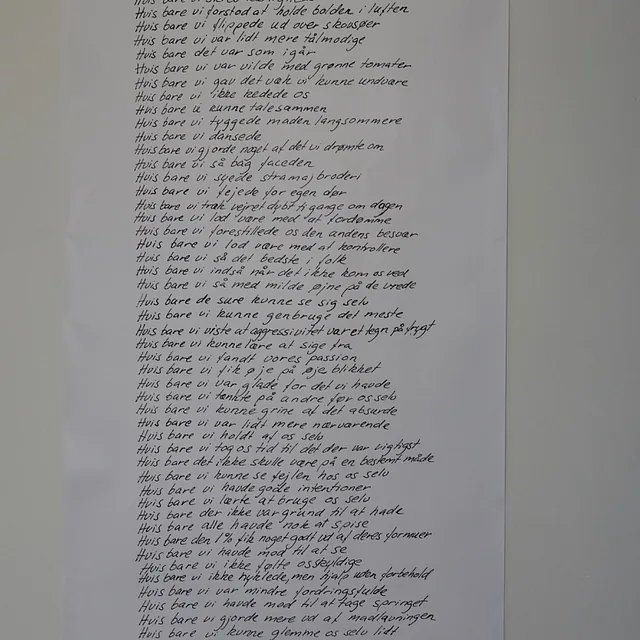 Hvis bare vi forstod at holde bolden i luften
Hvis bare vi flippede ud over skovsøer
Hvis bare vi var lidt mere tålmodige
Hvis bare det var som igår
Hvis bare vi var vilde med grønne tomater
Hvis bare vi gav det væk vi kunne undvære
Hvis bare vi ikke kedede os
Hvis bare vi kunne tale sammen
Hvis bare vi tyggede maden langsommere
Hvis bare vi dansede
Hvis bare vi gjorde noget af det vi drømte om
Hvis bare vi så bag faceden
Hvis bare vi syede stramajbroderi
Hvis bare vi fejede for egen dør
Hvis bare vi trak vejret dybt ti gange om dagen
Hvis bare vi lod være med at fordømme
Hvis bare vi forestillede os den andens besvær
Hvis bare vi lod være med at kontrollere
Hvis bare vi så det bedste i folk
Hvis bare vi indså når det ikke kom os ved
Hvis bare vi så med milde øjne på de vrede
Hvis bare de sure kunne se sig selv
Hvis bare vi kunne genbruge det meste
Hvis bare vi viste at aggressivitet var et tegn på frygt
Hvis bare vi kunne lære at sige fra
Hvis bare vi fandt vores passion
Hvis bare vi fik øje på øjeblikket
Hvis bare vi var glade for det vi havde
Hvis bare vi tænkte på andre før os selv
Hvis bare vi kunne grine af det absurde
Hvis bare vi var lidt mere nærværende
Hvis bare vi holdt af os selv
Hvis bare vi tog os tid til det der var vigtigst
Hvis bare det ikke skulle være på en bestemt måde
Hvis bare vi kunne se fejlen hos os selv
Hvis bare vi havde gode intentioner
Hvis bare vi lærte at bruge os selv
Hvis bare der ikke var grund til at hade
Hvis bare alle havde nok at spise
Hvis bare den 1% fik noget godt ud af deres formuer
Hvis bare vi havde mod til at se
Hvis bare vi ikke følte os skyldige
Hvis bare vi ikke hyklede, men hjalp uden forbehold
Hvis bare vi var mindre fordringsfulde
Hvis bare vi havde mod til at tage springet
Hvis bare vi gjorde mere ud af madlavningen
Hvis bare vi kunne glemme os selv lidt